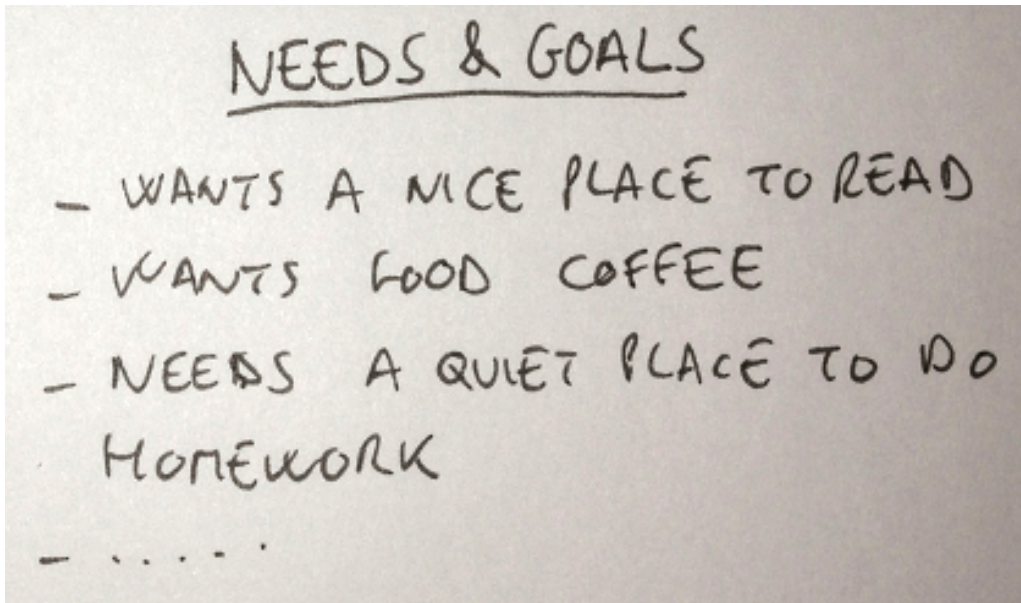 NEEDS & GOALS
- WANTS A NICE PLACE TO READ
- WANTS GOOD COFFEE
- NEEDS A QUIET PLACE TO DO
HOMEWORK
- .....